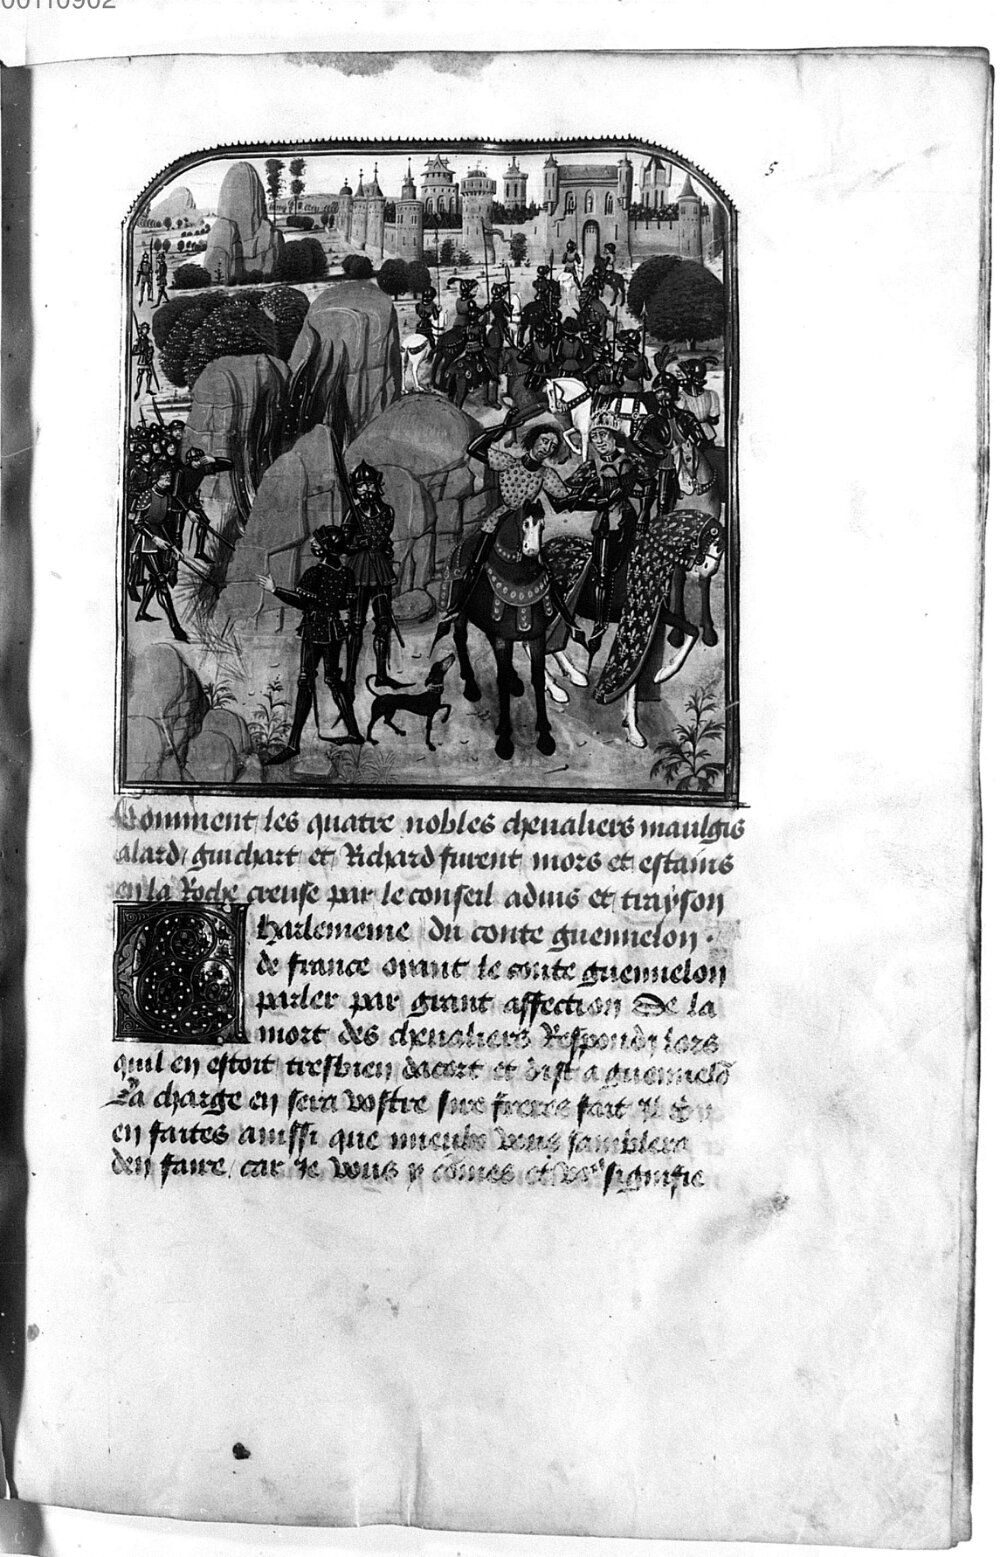 00110902
5
Comment les quatre nobles cheualiers maulgis
alard / guichart et Richard furent mors et estains
en la Roche creuse par le conseil aduis et trayson
harlemeine du conte guennelon .
de france oyant le conte guennelon
parler par grant affection De la
mort des cheualiers Respondi lors
quil en estoit tresbien dacort et dist a guennelō
La charge en sera vostre sire freres fait il
en faites ainssi que mieulx vous samblera
den faire / car Je vous y cōmes et signifie